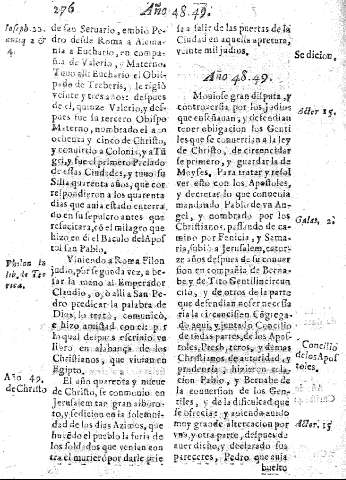 276
Año 48. 49.
Ioseph. 20.
antiq. 2 &
4.
de san Setuario, embio Pe-
dro desde Roma a Alema-
nia a Euchario, en compa-
ñia de Valerio, y Materno,
Tuuo alli Euchario el Obis-
pado de Treberis, le rigiò
veinte y tres años: despues
del, quinze Valerio, y des-
pues fue su tercero Obispo
Materno, nombrado el año
ochenta y cinco de Christo,
y conuirtio a Colonia, y a Tũ
gri, y fue el primero Prelado
de essas Ciudades, y tuuo su
Silla quarenta años, que cor
respondieron a los quarenta
dias que auia estado enterra-
do en su sepulcro antes que
resucitara, cõ el milagro que
hizo en èl el Baculo del Apos
tol san Pablo.
Philon
lib.
Viniendo a Roma Filon
judio, por segunda vez, a be-
sar la mano al Emperador
Claudio, oyò alli a san Pe-
dro predicar la palabra de
Dios, lo tratò, comunicò,
e hizo amistad con èl: por
lo qual despues escriuio vn
libro en alabança de los
Christianos, que viuian en
Egipto.
Año 49.
de Christo
El año quarenta y nueue
de Christo, se conmouio en
Jerusalem tan gran alboro-
to, y sedicion en la solemni-
dad de los dias Azimos, que
huyẽdo el pueblo la furia de
los soldados que venian con
tra el murierõ por darle prie
sa a salir de las puertas de la
Ciudad en aquella apretura,
veinte mil judios.
Sedicion.
Año 48. 49.
Mouiose gran disputa, y
controuersia, por los judios
que enseñauan, y defendian
tener obligacion los Genti
les que se conuertian a la ley
de Christo, de circuncidar
se primero, y guardar la de
Moyses. Para tratar y resol
ver esto con los Apostoles,
y decretar lo que conuenia
mandando Pablo de vn An-
gel, y nombrado por los
Christianos, passando de ca-
mino por Fenicia, y Sama-
ria, subiò a Jerusalem, cator-
ze años despues de su conuer
sion en compañia de Berna-
be, y de Tito Gentil incircun
ciso, y de otros de la parte
que defendian no ser necessa
ria la circuncision. Cõgrega-
do aqui, y juntado Concilio
de todas partes, de los Apos-
toles, Presbyteros, y demas
Christianos de autoridad, y
prudencia, hizieron relacion
Pablo, y Bernabe de
la conuersion de los Gen-
tiles, y la dificultad que
se ofrecia: y auiendo auido
muy grande altercacion por
vna, y otra parte, despues de
auer dicho, y declarado sus
pareceres, Pedro que auia
buelto
Actor 15.
Galat. 2.
Concilio
de los Apos
toles.
Actor. 15